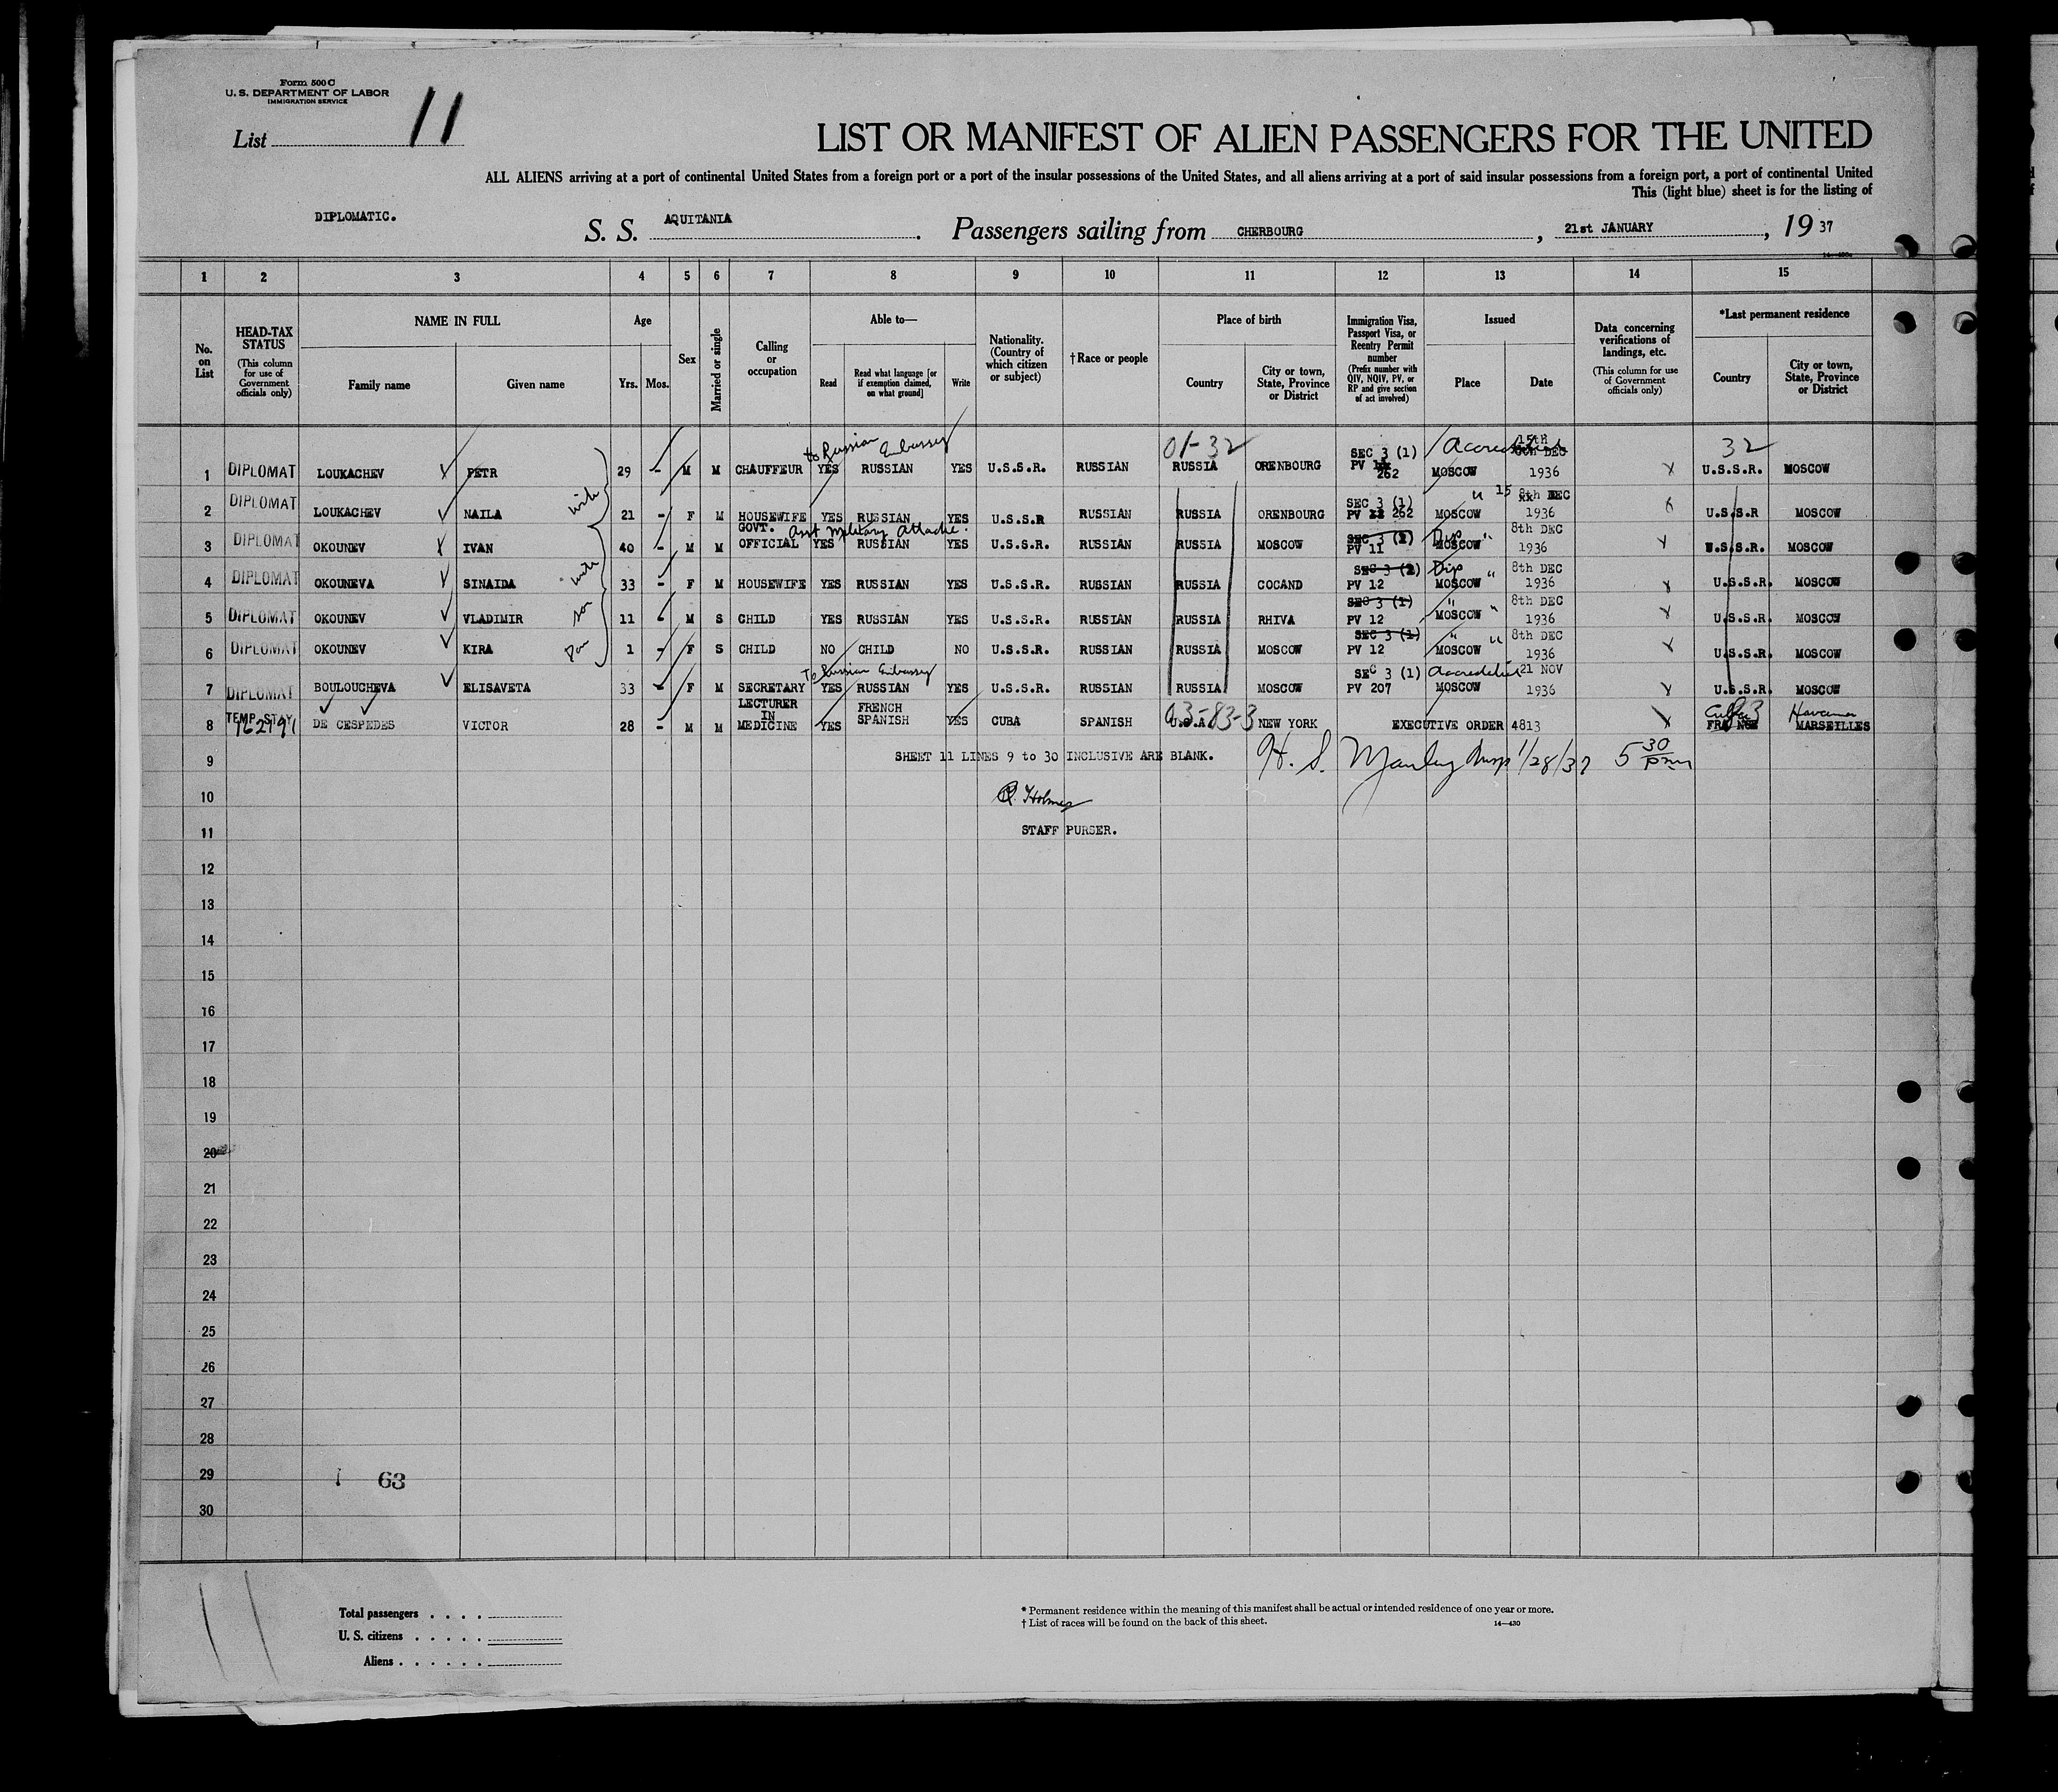 Form 500 C
U. S. DEPARTMENT OF LABOR
IMMIGRATION SERVICE
List 11
LIST OR MANIFEST OF ALIEN PASSENGERS FOR THE UNITED
ALL ALIENS arriving at a port of continental United States from a foreign port or a port of the insular possessions of the United States, and all aliens arriving at a port of said insular possessions from a foreign port, a port of continental United
This (light blue) sheet is for the listing of
DIPLOMATIC. S. S. AQUITANIA. Passengers sailing from CHERBOURG, 21st JANUARY, 19 37
1 2 3 4 5 6 7 8 9 10 11 12 13 14 15
No. on List
HEAD-TAX STATUS (This column for use of Government officials only)
NAME IN FULL
Family name Given name
Age
Yrs. Mos.
Sex
Married or single
Calling or occupation
Able to—
Read Read what language [or if exemption claimed, on what ground] Write
Nationality. (Country of which citizen or subject)
†Race or people
Place of birth
Country City or town, State, Province or District
Immigration Visa, Passport Visa, or Reentry Permit number (Prefix number with QIV, NQIV, PV, or RP and give section of act involved)
Issued
Place Date
Data concerning verifications of landings, etc. (This column for use of Government officials only)
*Last permanent residence
Country City or town, State, Province or District
to Russian Embassy 01-32 32
1 DIPLOMAT LOUKACHEV PETR 29 - M M CHAUFFEUR YES RUSSIAN YES U.S.S.R. RUSSIAN RUSSIA ORENBOURG SEC 3 (1) PV 262 MOSCOW 15th DEC 1936 U.S.S.R. MOSCOW
2 DIPLOMAT LOUKACHEV NAILA wife 21 - F M HOUSEWIFE YES RUSSIAN YES U.S.S.R RUSSIAN RUSSIA ORENBOURG SEC 3 (1) PV 262 MOSCOW " 15 8th DEC 1936 U.S.S.R MOSCOW
3 DIPLOMAT OKOUNEV IVAN 40 - M M GOVT. OFFICIAL Asst Military Attache. YES RUSSIAN YES U.S.S.R. RUSSIAN RUSSIA MOSCOW SEC 3 PV 11 Dip " MOSCOW 8th DEC 1936 U.S.S.R. MOSCOW
4 DIPLOMAT OKOUNEVA SINAIDA wife 33 - F M HOUSEWIFE YES RUSSIAN YES U.S.S.R. RUSSIAN RUSSIA COCAND SEC 3 PV 12 Dip " MOSCOW 8th DEC 1936 U.S.S.R. MOSCOW
5 DIPLOMAT OKOUNEV VLADIMIR son 11 - M S CHILD YES RUSSIAN YES U.S.S.R. RUSSIAN RUSSIA RHIVA SEC 3 (1) PV 12 " " MOSCOW 8th DEC 1936 U.S.S.R. MOSCOW
6 DIPLOMAT OKOUNEV KIRA 1 - F S CHILD NO CHILD NO U.S.S.R. RUSSIAN RUSSIA MOSCOW SEC 3 (1) PV 12 " " MOSCOW 8th DEC 1936 U.S.S.R. MOSCOW
7 DIPLOMAT BOULOUCHEVA ELISAVETA 33 - F M SECRETARY To Russian Embassy YES RUSSIAN YES U.S.S.R. RUSSIAN RUSSIA MOSCOW SEC 3 (1) PV 207 Accredited MOSCOW 21 NOV 1936 U.S.S.R. MOSCOW
8 TEMP STAY 162191 DE CESPEDES VICTOR 28 - M M LECTURER IN MEDICINE YES FRENCH SPANISH YES CUBA SPANISH 03-83-3 U.S.A. NEW YORK EXECUTIVE ORDER 4813 Cuba 83 FRANCE Havana MARSEILLES
9 SHEET 11 LINES 9 to 30 INCLUSIVE ARE BLANK. H. S. Manley Insp 1/28/37 5 30 pm
10 Holmes
11 STAFF PURSER.
12
13
14
15
16
17
18
19
20
21
22
23
24
25
26
27
28
29 63
30
Total passengers
U. S. citizens
Aliens
* Permanent residence within the meaning of this manifest shall be actual or intended residence of one year or more.
† List of races will be found on the back of this sheet.
14—430